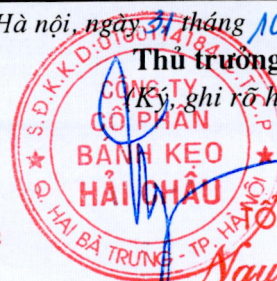 Hà nội, ngày 31 tháng 10
Thủ trưởng
(Ký, ghi rõ h
S.Đ.K.K.D:0100114184.C.T.C.P
CÔNG TY
CỔ PHẦN
BÁNH KẸO
HẢI CHÂU
Q. HAI BÀ TRƯNG - TP. HÀ NỘI
TỔ